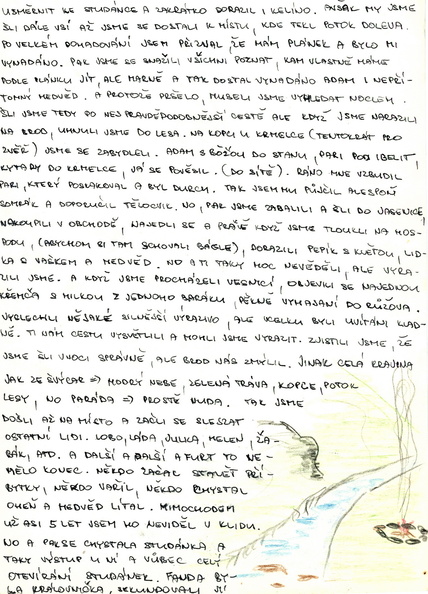 USMĚRNIT KE STUDÁNCE A ZAKRÁTKO DORAZIL I KELÍNO. AVŠAK MY JSME
ŠLI DÁLE VSÍ AŽ JSME SE DOSTALI K MÍSTU, KDE TEKL POTOK DOLEVA.
PO VELKÉM DOHADOVÁNÍ JSEM PŘIZNAL, ŽE MÁM PLÁNEK A BYLO MI
VYNADÁNO. PAK JSME SE SNAŽILI VŠICHNI POZNAT, KAM VLASTNĚ MÁME
PODLE PLÁNKU JÍT, ALE MARNĚ A TAK DOSTAL VYNADÁNO ADAM I NEPŘÍ-
TOMNÝ MEDVĚD. A PROTOŽE PRŠELO, MUSELI JSME VYHLEDAT NOCLEH.
ŠLI JSME TEDY PO NEJPRAVDĚPODOBNĚJŠÍ CESTĚ ALE KDYŽ JSME NARAZILI
NA BROD, UHNULI JSME DO LESA. NA KOPCI U KRMELCE (TENTOKRÁT PRO
ZVĚŘ) JSME SE ZABYDLELI. ADAM S BÓŽOU DO STANU, PARI POD IBELIT,
KYTARY DO KRMELCE, JÁ SE POVĚSIL. (DO SÍTĚ). RÁNO MNE VZBUDIL
PARI, KTERÝ POSKAKOVAL A BYL DURCH. TAK JSEM MU PŮJČIL ALESPOŇ
SOMRÁK A DOPORUČIL TĚLOCVIK. NO, PAK JSME ZABALILI A ŠLI DO JASENICE,
NAKOUPILI V OBCHODĚ, NAJEDLI SE A PRÁVĚ KDYŽ JSME TLOUKLI NA HOS-
PODU, (ABYCHOM SI TAM SCHOVALI BÁGLE), DORAZILI PEPÍK S KVĚTOU, LID-
KA S VAŠKEM A MEDVĚD. NO A TI TAKY MOC NEVĚDĚLI, ALE VYRA-
ZILI JSME. A KDYŽ JSME PROCHÁZELI VESNICÍ, OBJEVIL SE NAJEDNOU
KŘEMČA S MILKOU Z JEDNOHO BARÁKU, PĚKNĚ VYHAJANÍ DO RŮŽOVA.
VYSLECHLI NĚJAKÉ SILNĚJŠÍ VÝRAZIVO, ALE VCELKU BYLI UVÍTÁNI KLAD-
NĚ. TI NÁM CESTU VYSVĚTLILI A MOHLI JSME VYRAZIT. ZJISTILI JSME, ŽE
JSME ŠLI V NOCI SPRÁVNĚ, ALE BROD NÁS ZMÝLIL. JINAK CELÁ KRAJINA
JAK ZE ŠVÝCAR => MODRÝ NEBE, ZELENÁ TRÁVA, KOPCE, POTOK
LESY, NO PARÁDA => PROSTĚ NUDA. TAK JSME
DOŠLI AŽ NA MÍSTO A ZAČLI SE SLÉZAT
OSTATNÍ LIDI. LOBO, LÁĎA, JULKA, HELEN, ŽA-
BÁK, ATD. A DALŠÍ A DALŠÍ A FURT TO NE-
MĚLO KONEC. NĚKDO ZAČAL STAVĚT PŘÍ-
BYTKY, NĚKDO VAŘIL, NĚKDO CHYSTAL
OHEŇ A MEDVĚD LÍTAL. MIMOCHODEM
UŽ ASI 5 LET JSEM HO NEVIDĚL V KLIDU.
NO A PAK SE CHYSTALA STUDÁNKA A
TAKY VÝSTUP U NÍ A VŮBEC CELÝ
OTEVÍRÁNÍ STUDÁNEK. FANDA BY-
LA KRÁLOVNIČKA, SEKUNDOVALI JÍ